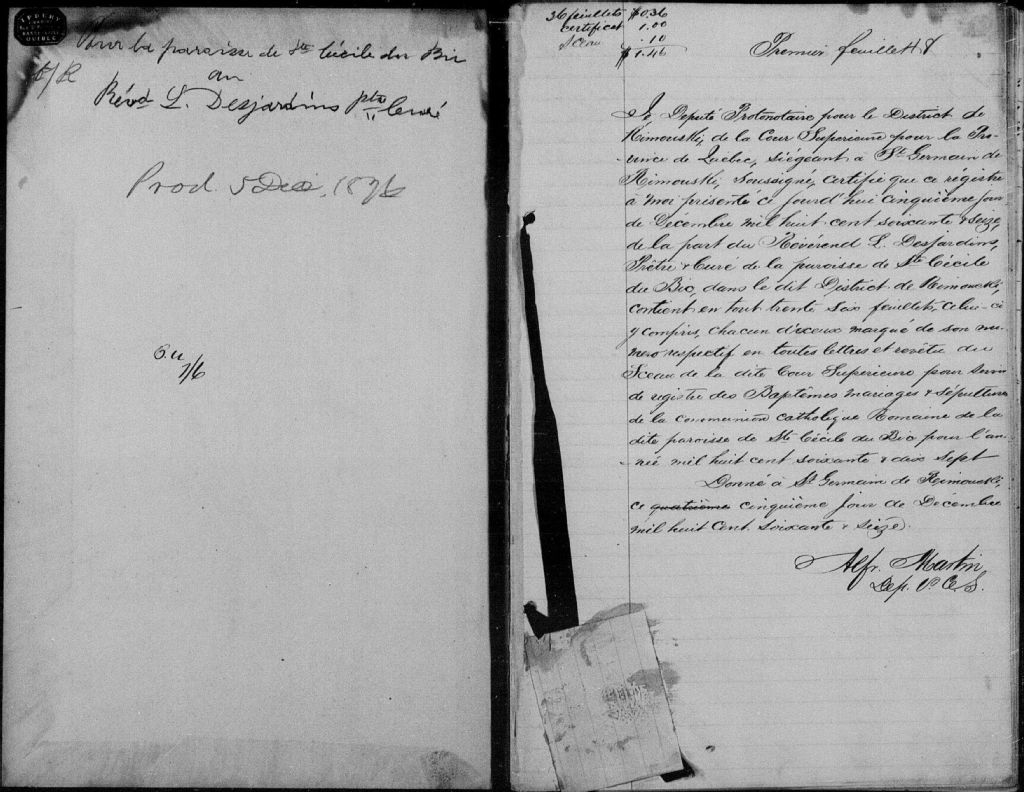 Pour la paroisse de Ste Cécile du Bic
au
Révd L. Desjardins ptre Curé
Prod. 5 Dec, 1876
36 feuillets $0.36
Certificat 1.00
Sceau .10
$1.46
Premier feuillet
Je, Deputé Protonotaire pour le District de
Rimouski, de la Cour Superieure pour la Pro-
-vince de Quebec, siégeant à St Germain de
Rimouski, soussigné, certifie que ce régistre
à moi présenté ce jourd'hui cinquième jour
de Décembre mil huit cent soixante & seize,
de la part du Révérend L. Desjardins,
Prêtre & Curé de la paroisse de Ste Cécile
du Bic, dans le dit District de Rimouski,
contient en tout trente six feuillets, celui-ci
y compris, chacun d'iceux marqué de son nu-
mero respectif en toutes lettres et revêtu du
Sceau de la dite Cour Superieure pour servir
de registre des Baptêmes mariages & sépultures
de la communion catholique Romaine de la
dite paroisse de Ste Cécile du Bic pour l'an-
-née mil huit cent soixante & dix sept
Donné à St Germain de Rimouski,
ce quatrième cinquième jour de Décembre
mil huit cent soixante & seize.
Alfr. Martin
Dep. P. C. S.